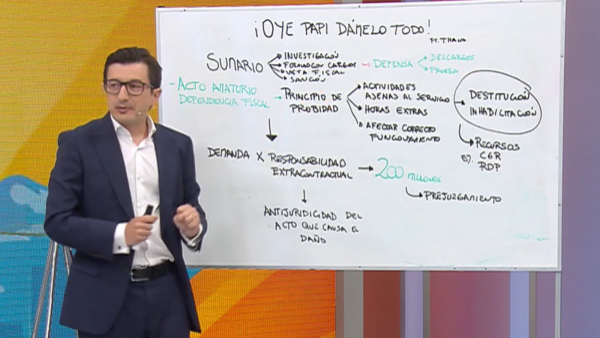 ¡OYE PAPI DÁMELO TODO!
FT. THALIA
SUMARIO
INVESTIGACIÓN
FORMULACIÓN CARGOS
VISTA FISCAL
SANCIÓN
DEFENSA
DESCARGOS
PRUEBA
- ACTO AMATORIO
DEPENDENCIA FISCAL
PRINCIPIO DE
PROBIDAD
ACTIVIDADES
AJENAS AL SERVICIO
HORAS EXTRAS
AFECTAR CORRECTO
FUNCIONAMIENTO
DESTITUCIÓN
INHABILITACIÓN
RECURSOS
EJ. CGR
RDP
DEMANDA X RESPONSABILIDAD
EXTRACONTRACTUAL
200 MILLONES
PREJUZGAMIENTO
ANTIJURICIDAD DEL
ACTO QUE CAUSA EL
DAÑO